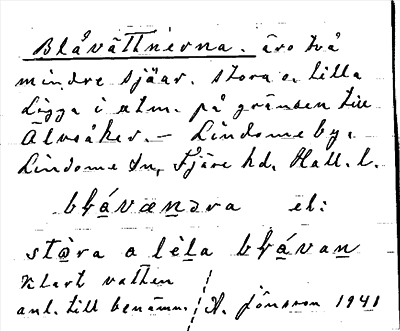 Blåvättnerna. äro två
mindre sjöar. stora o. lilla
Ligga i utm. på gränsen till
Älvsåker. — Lindome by,
Lindome sn, Fjäre hd. Hall. l.
blåvænəra el:
stora o lela blåvan
klart vatten
anl. till benämn. / A. Jönsson 1941